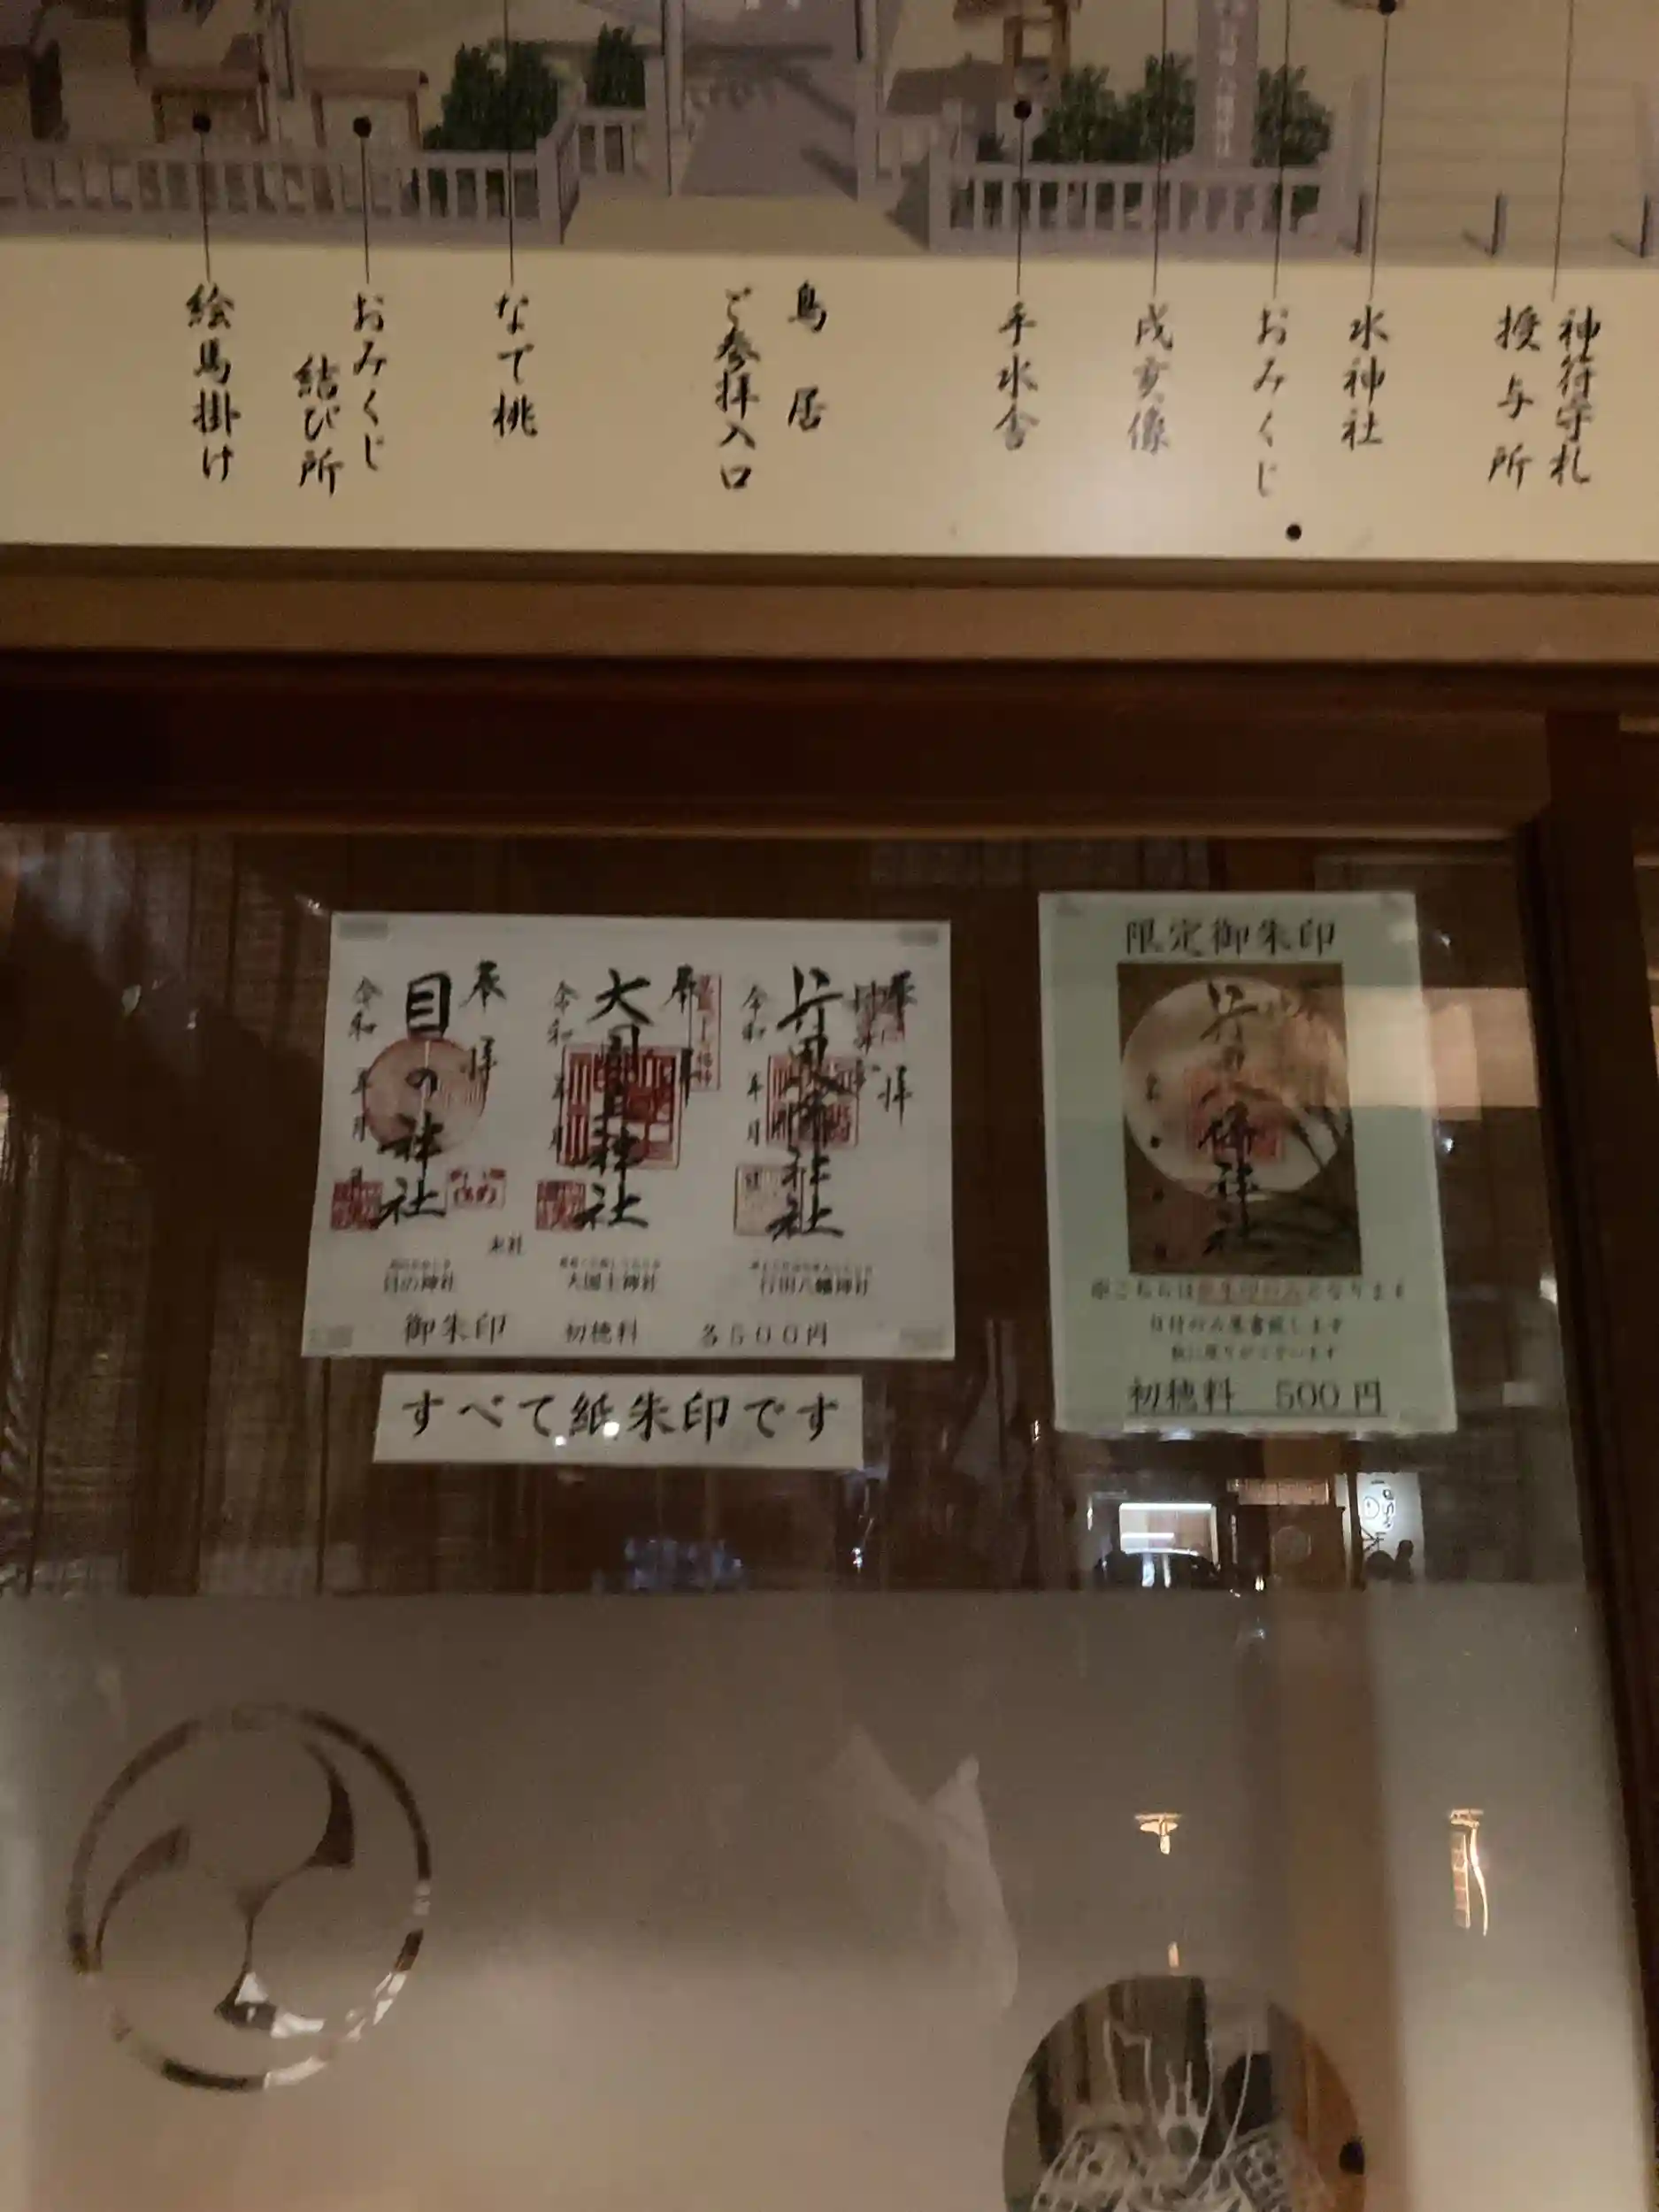 神符守札
授与所
水神社
おみくじ
戌亥像
手水舎
鳥居
ご参拝入口
なで桃
おみくじ
結び所
絵馬掛け
奉拝
行田八幡神社
令和 年 月
奉拝
大国主神社
令和 年 月
奉拝
目の神社
令和 年 月 日
末社
目の神社
大国主神社
行田八幡神社
御朱印 初穂料 各500円
すべて紙朱印です
限定御朱印
行田八幡神社
日付のみ墨書致します
初穂料 500円